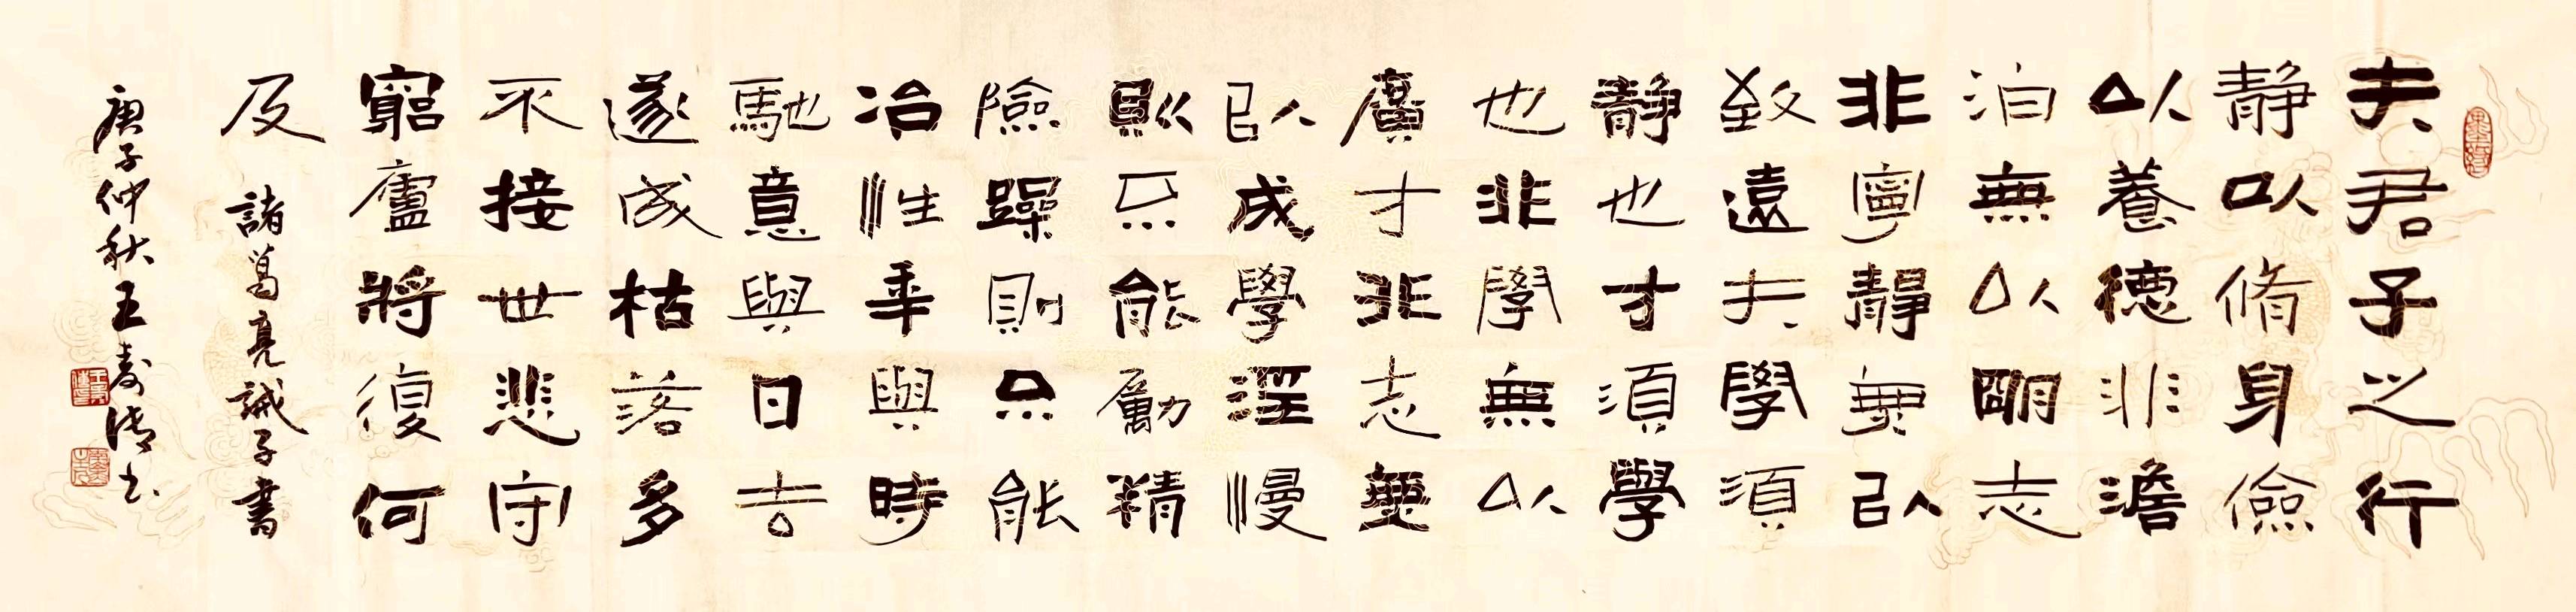 夫君子之行
静以脩身儉
以養德非澹
泊無以明志
非寧靜無以
致遠夫學須
静也才須學
也非學無以
廣才非志無
以成學淫慢
則不能勵精
險躁則不能
冶性年與時
馳意與日去
遂成枯落多
不接世悲守
窮廬將復何
及 諸葛亮誡子書
庚子仲秋王寿清书